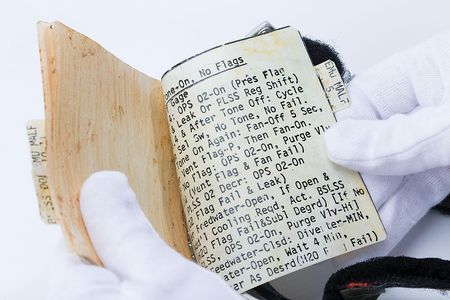 one-On, No Flags
Gage
d: OPS O2-On (Pres Flag
& Leak Or PLSS Reg Shift)
& After Tone Off: Cycle
Sel Sw, No Tone, No Fail.
Tone On Again: Fan-Off 5 Sec,
Vent Flag-P, Then Fan-On.
d: OPS O2-On, Purge Vlv
(Vent Flag & Fan Fail)
No: OPS O2-On
ss O2 Decr: OPS O2-On
Flag Fail & Leak)
Feedwater-Open, If Open &
Cooling Reqd, Act. BSLSS
20 Flag Fail&Subl Degrd) [If No
SS, OPS O2-On, Purge Vlv-Hi]
Feedwater-Clsd: Diverter-MIN,
water-Open, Wait 4 Min,
er As Desrd(H20 Fail)
EMU MALF
5
EMU MALF